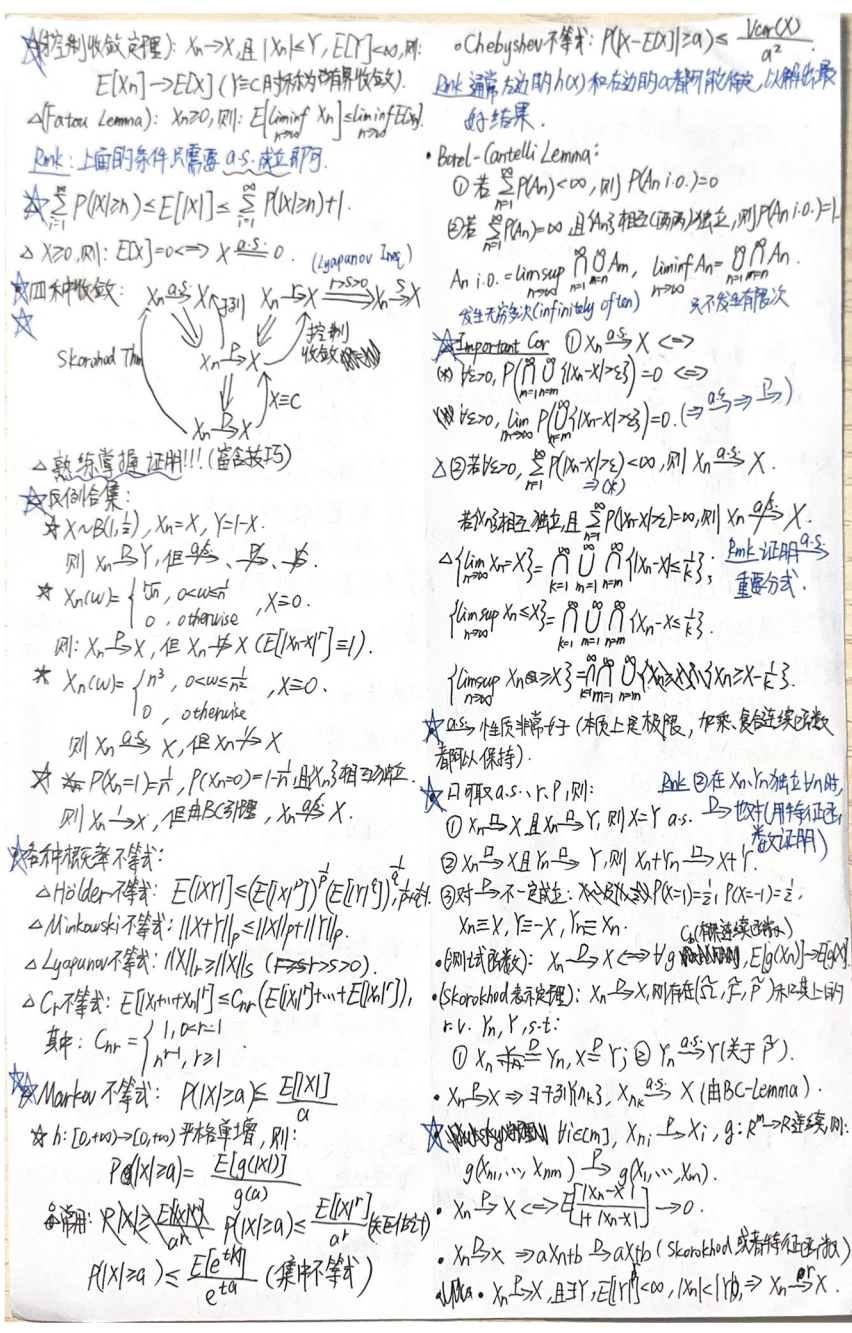 ☆(控制收敛定理): Xn→X, 且 |Xn|≤Y, E[Y]<∞, 则:
E[Xn]→E[X] (Y≡C时称为有界收敛).
△(Fatou Lemma): Xn≥0, 则: E[liminf_{n→∞} Xn]≤liminf_{n→∞} E[Xn].
Rmk: 上面的条件只需要 a.s. 成立即可.
☆ ∑_{i=1}^∞ P(|X|≥n)≤E[|X|]≤∑_{i=1}^∞ P(|X|≥n)+1.
△ X≥0, 则: E[X]=0 <=> X =^{a.s.} 0.
(Lyapunov Ineq)
☆四种收敛: Xn →^{a.s.} X 子列 Xn →^r X =>^{r>s>0} Xn →^s X
☆
Skorohod Thm Xn →^P X 控制收敛
X≡C
Xn →^D X
△ 熟练掌握证明!!! (富含技巧)
☆反例合集:
☆ X~B(1,½), Xn=X, Y=1-X.
则 Xn →^D Y, 但
☆ Xn(w)={ n, 0<w≤1/n ; 0, otherwise , X≡0.
则: Xn →^P X, 但 Xn ↛ X (E[|Xn-X|^r]≡1).
☆ Xn(w)={ n³, 0<w≤1/n² ; 0, otherwise , X≡0.
则 Xn →^{a.s.} X, 但 Xn ↛^1 X
☆ P(Xn=1)=1/n, P(Xn=0)=1-1/n, 且{Xn}相互独立.
则 Xn →^1 X, 但由BC引理, Xn ↛^{a.s.} X.
☆各种概率不等式:
△Hölder不等式: E[|XY|]≤(E[|X|^p])^{1/p}(E[|Y|^q])^{1/q},
△Minkowski不等式: ||X+Y||_p≤||X||_p+||Y||_p.
△Lyapunov不等式: ||X||_r≥||X||_s (r>s>0).
△Cr不等式: E[|X₁+…+Xn|^r]≤C_{nr}(E[|X₁|^r]+…+E[|Xn|^r]),
其中: C_{nr}={ 1, 0<r≤1 ; n^{r-1}, r>1 .
☆☆Markov 不等式: P(|X|≥a)≤ E[|X|]/a
☆ h: [0,+∞)→[0,+∞) 严格单增, 则:
P(|X|≥a)= E[g(|X|)]/g(a)
常用: P(|X|≥a)≤ E[|X|^r]/a^r (矩估计)
P(|X|≥a)≤ E[e^{t|X|}]/e^{ta} (集中不等式)
∘Chebyshev不等式: P(|X-E[X]|≥a)≤ Var(X)/a².
Rmk 通常左边的h(x)和右边的a都可能待定, 以解出最
好结果.
• Borel-Cantelli Lemma:
① 若 ∑_{n=1}^∞ P(An)<∞, 则 P(An i.o.)=0
②若 ∑_{n=1}^∞ P(An)=∞ 且{An}相互(两两)独立, 则P(An i.o.)=1.
An i.o.=limsup_{n→∞} ∩_{n=1}^∞ ∪_{m=n}^∞ Am, liminf_{n→∞} An= ∪_{n=1}^∞ ∩_{m=n}^∞
发生无穷多次(infinitely often) 只不发生有限次
☆Important Cor ① Xn →^{a.s.} X <=>
(*) ∀ε>0, P(∩_{m=1}^∞ ∪_{n=m}^∞ {|Xn-X|>ε})=0 <=>
(**) ∀ε>0, lim_{m→∞} P(∪_{n=m}^∞ {|Xn-X|>ε})=0. (⇒ →^{a.s.} ⇒ →^P)
△②若∀ε>0, ∑_{n=1}^∞ P(|Xn-X|>ε)<∞, 则 Xn →^{a.s.} X.
⇒(*)
若{Xn}相互独立, 且 ∑_{n=1}^∞ P(|Xn-X|>ε)=∞, 则 Xn ↛^{a.s.} X.
△{lim_{n→∞} Xn=X}= ∩_{k=1}^∞ ∪_{m=1}^∞ ∩_{n=m}^∞ {|Xn-X|≤1/k}; Rmk 证明 →^{a.s.}
重要分式.
{limsup_{n→∞} Xn≤X}= ∩_{k=1}^∞ ∪_{m=1}^∞ ∩_{n=m}^∞ {Xn-X≤1/k}.
{limsup_{n→∞} Xn≥X}= ∩_{k=1}^∞ ∩_{m=1}^∞ ∪_{n=m}^∞ {Xn≥X-1/k}.
☆ →^{a.s.} 性质非常好 (本质上是极限, 加乘、复合连续函数
都可以保持).
☆ □可取a.s.、r、P, 则: Rmk ②在Xn、Yn独立∀n时,
① Xn →^□ X 且 Xn →^□ Y, 则 X=Y a.s. →^D 也对(用特征函
数证明)
② Xn →^□ X 且 Yn →^□ Y, 则 Xn+Yn →^□ X+Y.
③对 →^D 不一定成立: P(X=1)=½, P(X=-1)=½,
Xn≡X, Y≡-X, Yn≡Xn.
C_b(有界连续函数)
•(测试函数): Xn →^D X <=> ∀g , E[g(Xn)]→E[g(X)].
•(Skorokhod表示定理): Xn →^D X, 则存在(Ω̃, F̃, P̃)和其上的
r.v. Yn, Y, s.t:
① Xn =^D Yn, X =^D Y; ② Yn →^{a.s.} Y(关于 P̃).
• Xn →^P X ⇒ ∃子列{nk}, Xnk →^{a.s.} X (由BC-Lemma).
☆ ∀i∈[m], Xni →^P Xi, g: R^m→R连续, 则:
g(Xn1,…, Xnm) →^P g(X1,…, Xm).
• Xn →^P X <=> E[|Xn-X|/(1+|Xn-X|)]→0.
• Xn →^D X ⇒ aXn+b →^D aX+b (Skorokhod或者特征函数)
• Xn →^P X, 且∃Y, E[|Y|^r]<∞, |Xn|<|Y|, ⇒ Xn →^r X.